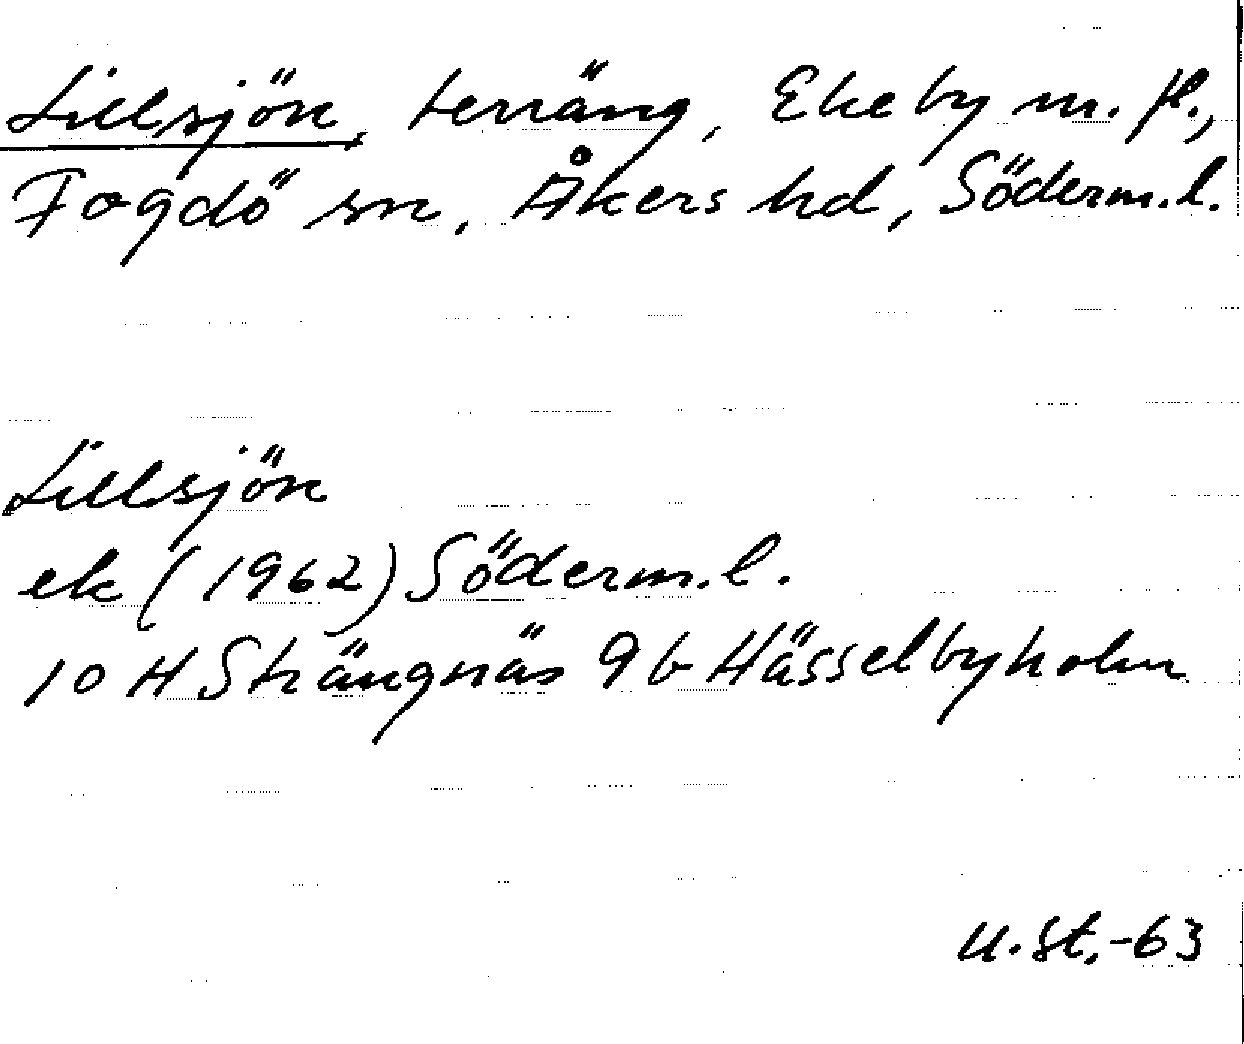 Lillsjön, terräng, Ekeby m. fl.,
Fogdö sn, Åkers hd, Söderm.l.
Lillsjön
ek (1962) Söderm.l.
10 H Strängnäs 9 b Hässelbyholm
U.St.-63